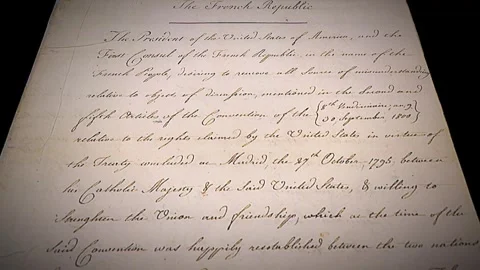 The French Republic
The President of the United States of America, and the
First Consul of the French Republic, in the name of the
French People, desiring to remove all Source of misunderstanding
relative to objects of discussion, mentioned in the Second and
fifth Articles of the Convention of the (8th Vendémiaire, an 9
30 September 1800)
relative to the rights claimed by the United States in virtue of
the Treaty concluded at Madrid, the 27th October, 1795, between
his Catholic Majesty & the Said United States, & willing to
Strengthen the Union and friendship, which at the time of the
Said Convention was happily reestablished between the two nations